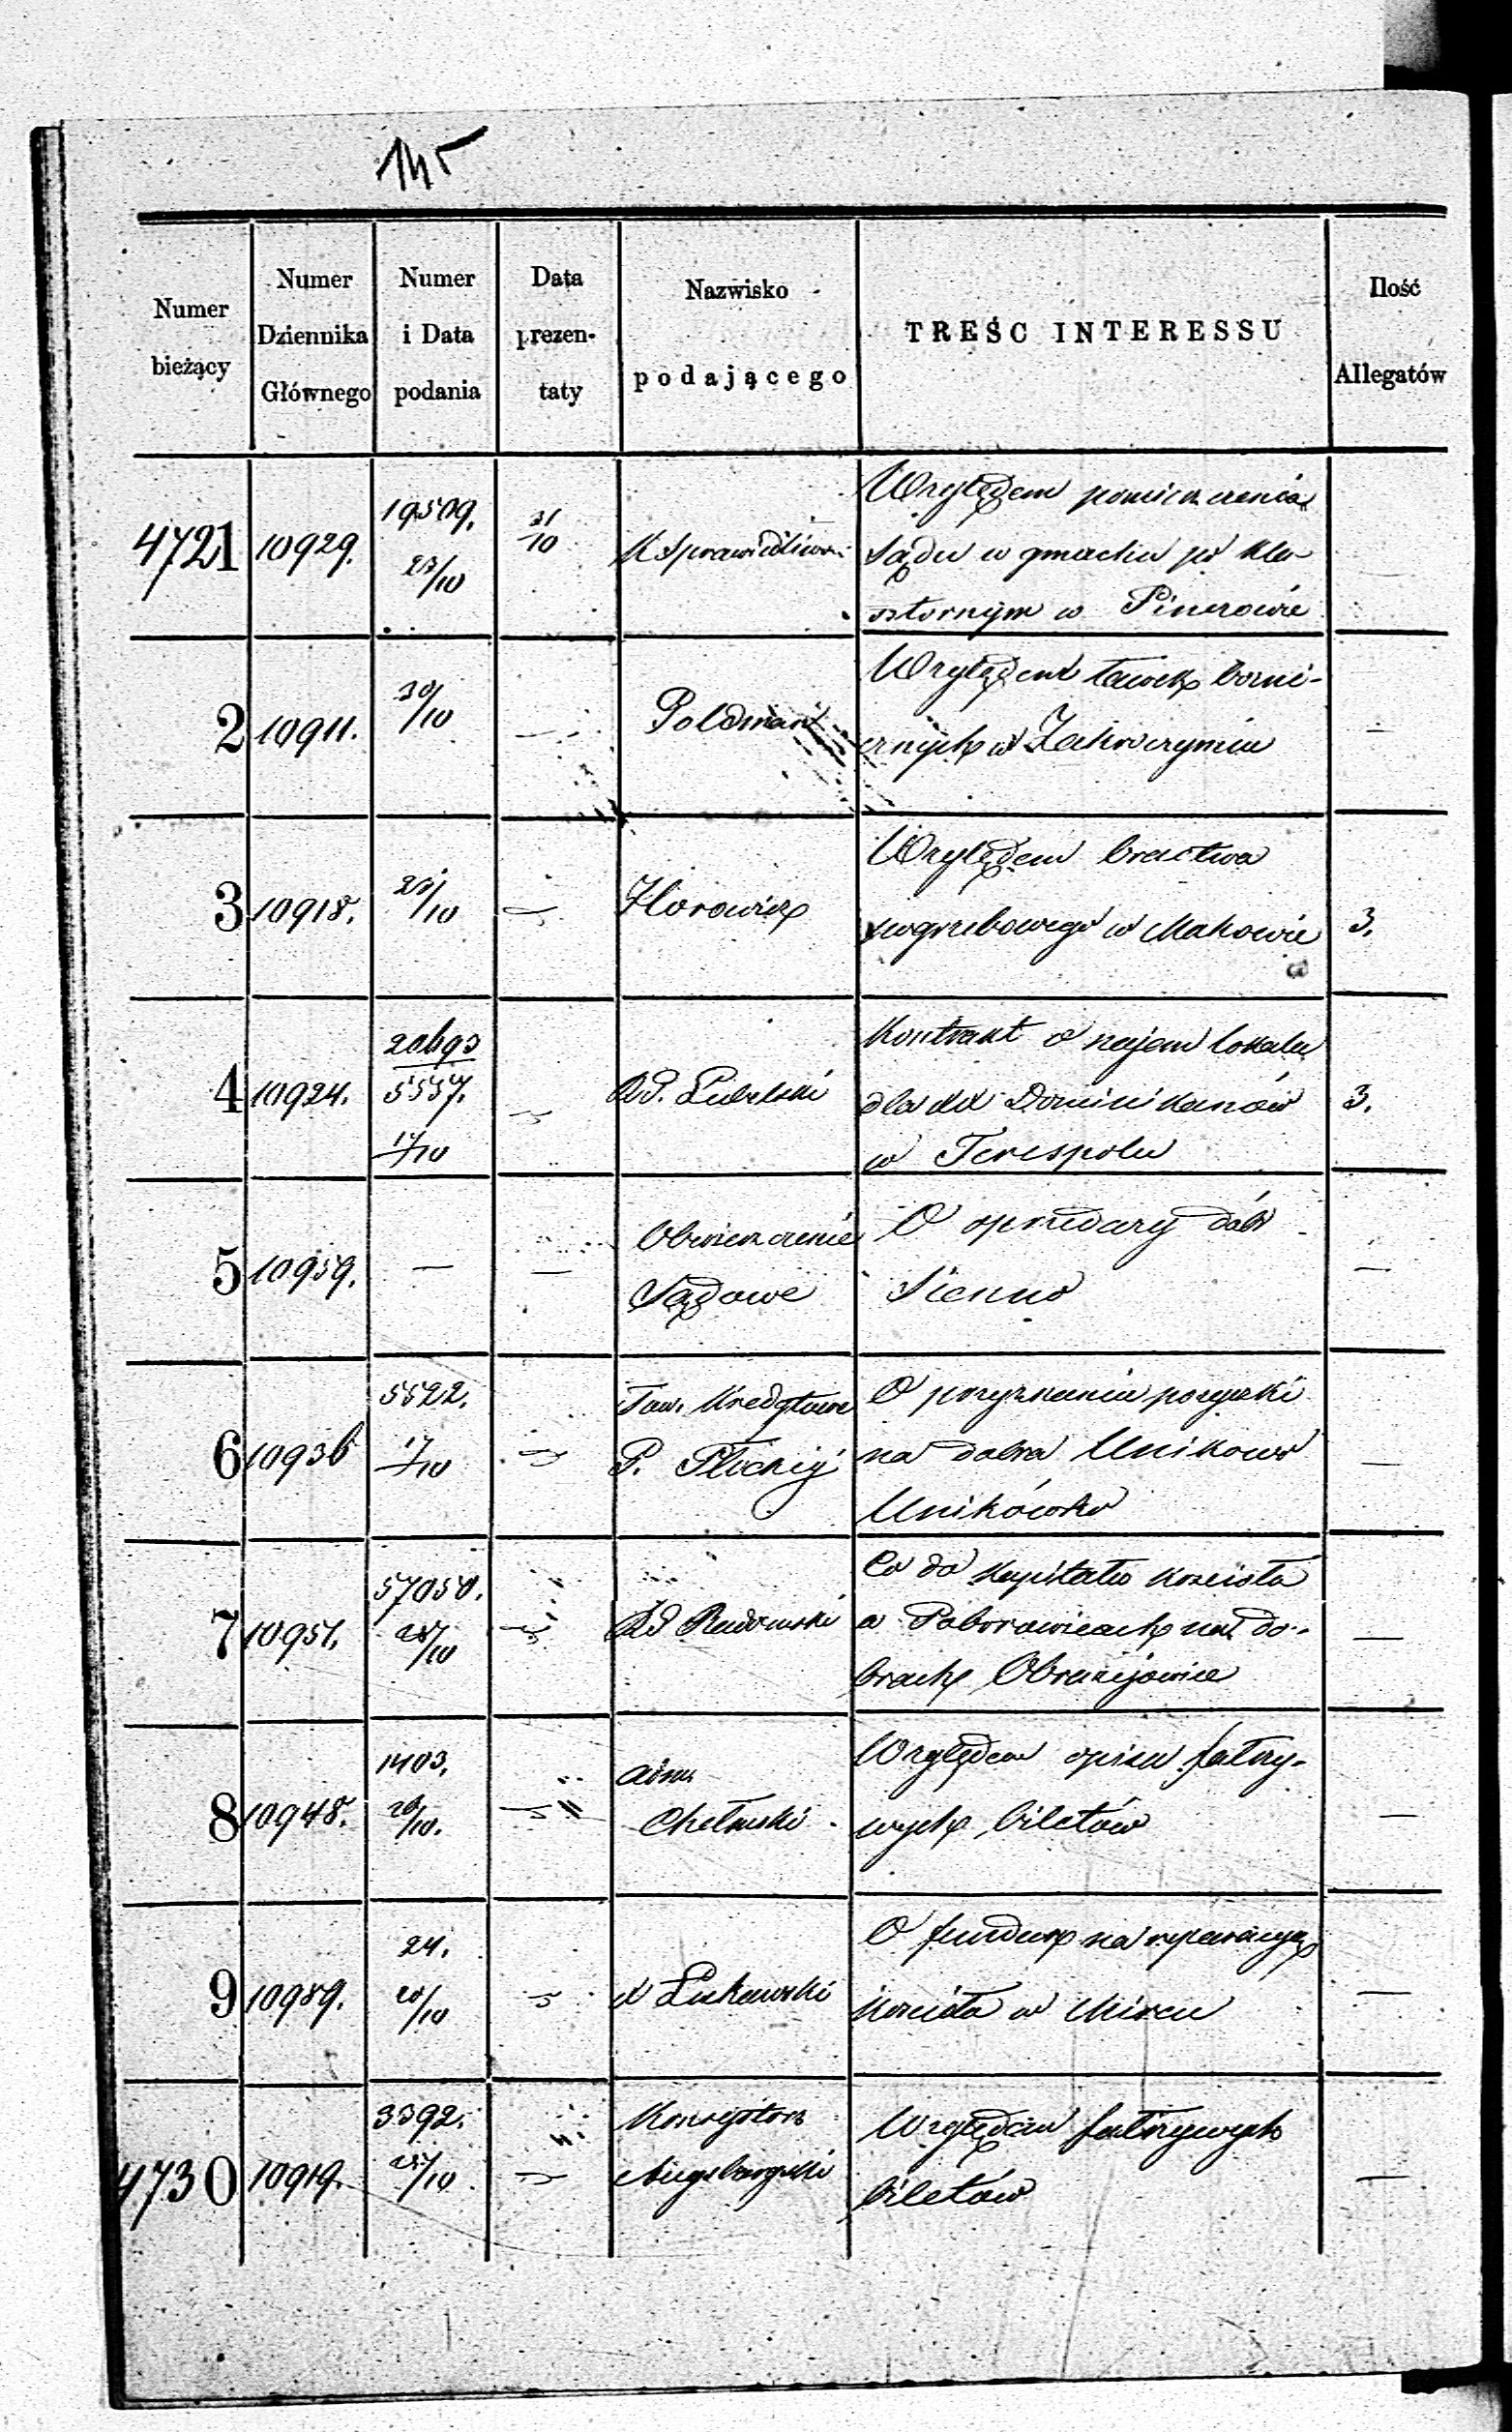 Numer bieżący
Numer Dziennika Głównego
Numer i Data podania
Data prezen-taty
Nazwisko podającego
TREŚC INTERESSU
Ilość Allegatów
4721 10929. 19509. 23/10 31/10 K Sprawiedliwości
Względem pomieszczenia
Sądu w gmachu po kla-
sztornym w Pinczowie
2 10911. 30/10 — Goldman —
Względem ławek bożni-
cznych w Zakroczymiu
3 10918. 29/10 Horowicz 3.
Względem bractwa
pogrzebowego w Makowie
4 10924. 5557. 17/10 Rd. Lubelski 3.
Kontrakt o najem lokalu
dla XX Dominikanów
w Terespolu
5 10959. — — Obwieszczenie —
Sądowe
O sprzedaży dóbr
Sienno
6 10936 5522. 17/10 Tow. Kredytowe —
P. Płockiej
O przyznaniu pożyczki
na dobra Unikowo
Unikówko
7 10951. 57050. Rd Radomski —
Co do kapitału kościoła
w Poborowicach na do-
brach Obrazejowice
8 10948. 1403. 20/10. adm. —
Chełmski
Względem opisu fałszy-
wych biletów
9 10989. 24. 20/10 X Lukawski —
O fundusz na reparacyę
kościoła w Mircu
4730 10919. 3392. 25/10 Konsystorz —
Augsburgski
Względem fałszywych
biletów